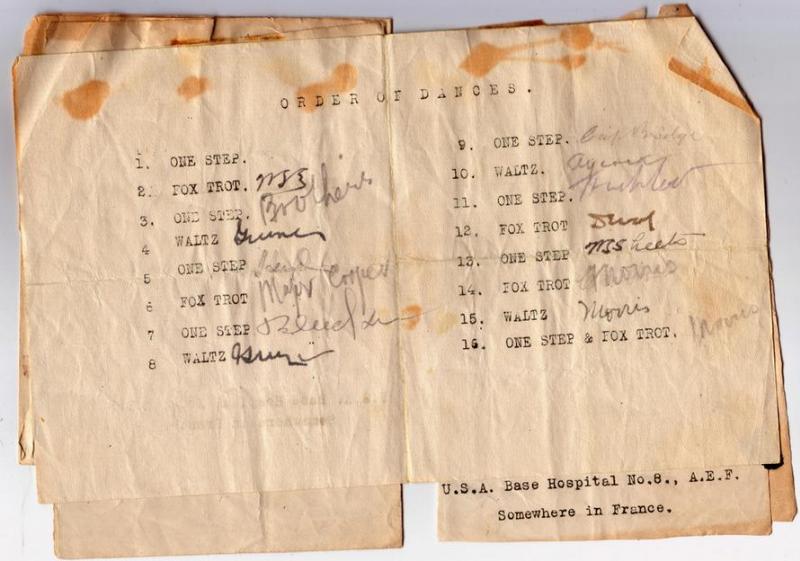 ORDER OF DANCES.
1. ONE STEP.
2. FOX TROT.
3. ONE STEP. Brothers
4 WALTZ
5 ONE STEP
6 FOX TROT Major Cooper
7 ONE STEP
8 WALTZ
9. ONE STEP.
10. WALTZ.
11. ONE STEP.
12. FOX TROT
13. ONE STEP
14. FOX TROT Morris
15. WALTZ Morris
16. ONE STEP & FOX TROT. Morris
U.S.A. Base Hospital No.8., A.E.F.
Somewhere in France.